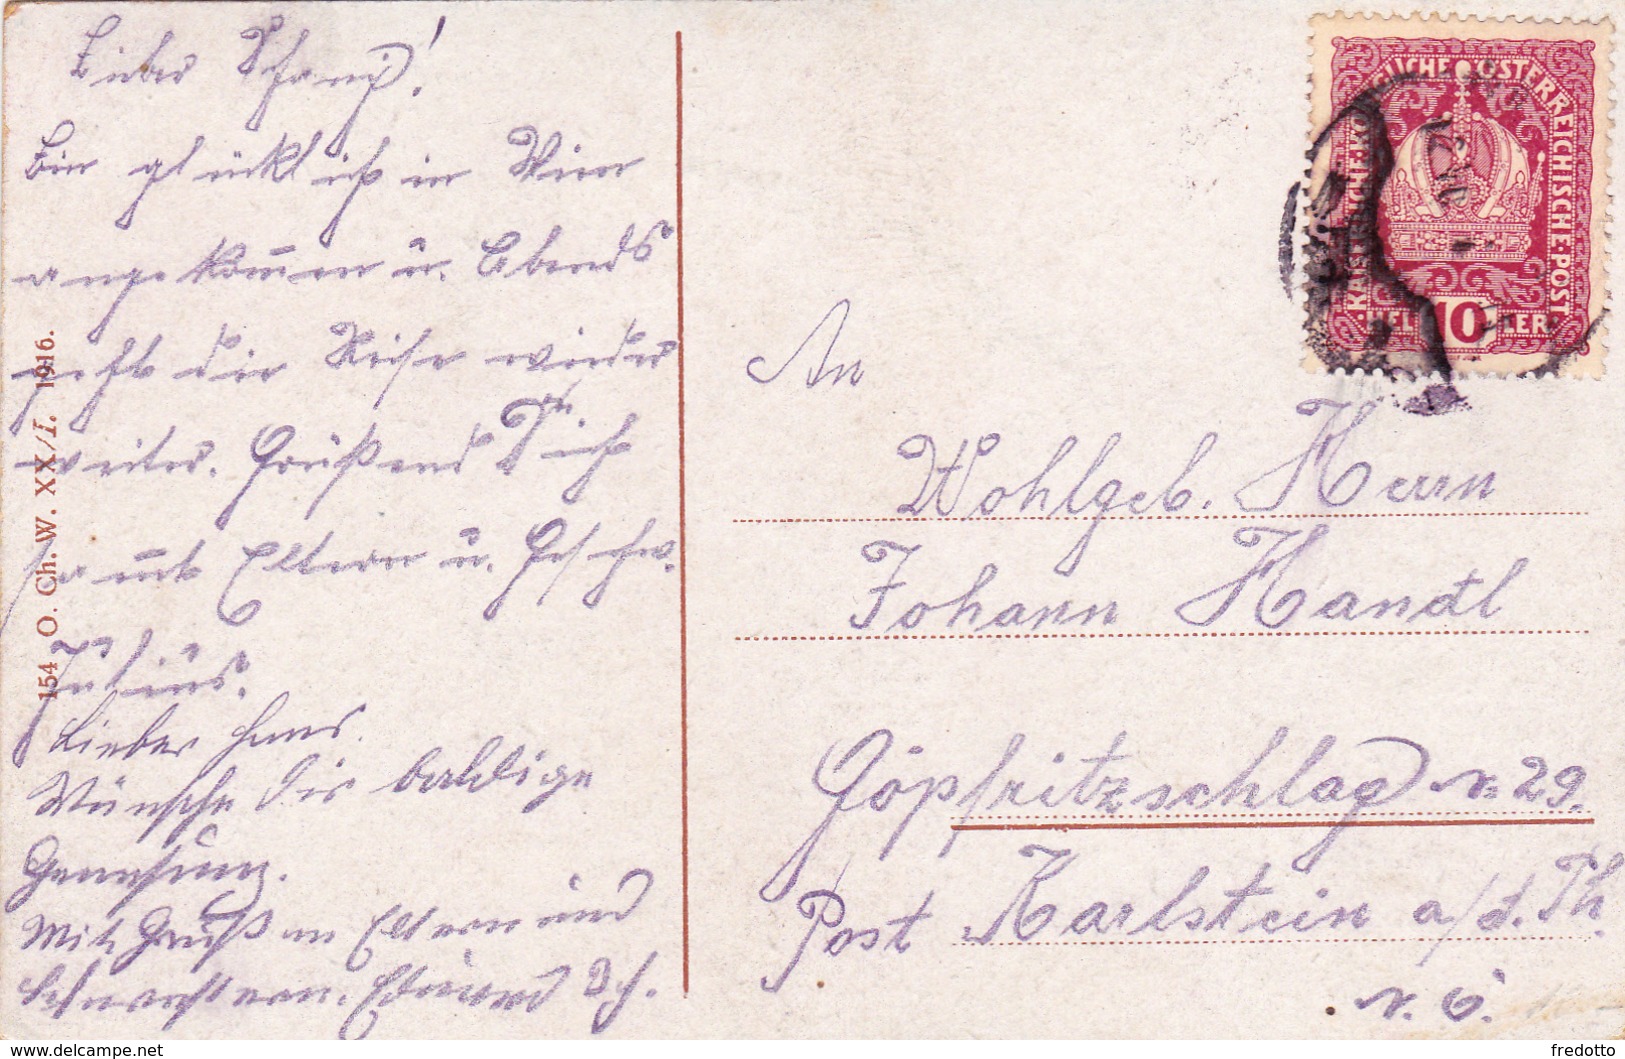 Lieber Schani!
Bin glücklich in Wien
angekom̄en u. Abends
geht die Reise wieder
weiter. Grüßend Dich
sam̄t Eltern u. Geschw.
Julius.
Lieber Hans.
Wünsche Dir baldige
Genesung.
Mit Gruß an Eltern und
Eduard Sch.
154 O. Ch. W. XX/I. 1916.
KAISERLICHE KÖNIGLICHE ÖSTERREICHISCHE POST
HELLER
10
An
Wohlgeb. Herrn
Johann Handl
Göpfritzschlag N: 29.
Post Karlstein a/d. Th.
N. Ö.
delcampe.net
fredotto